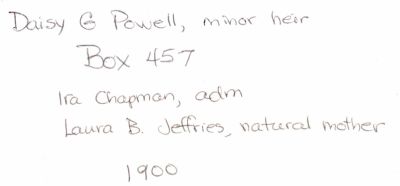 Daisy G Powell, minor heir
Box 457
Ira Chapman, adm
Laura B. Jeffries, natural mother
1900